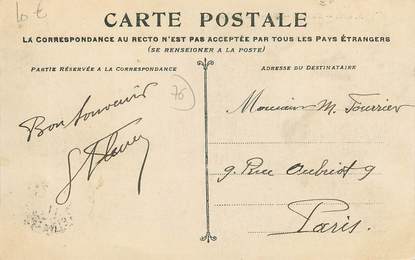 10 €
CARTE POSTALE
LA CORRESPONDANCE AU RECTO N'EST PAS ACCEPTÉE PAR TOUS LES PAYS ÉTRANGERS
(SE RENSEIGNER A LA POSTE)
PARTIE RÉSERVÉE A LA CORRESPONDANCE
ADRESSE DU DESTINATAIRE
76
Bon souvenir
Monsieur M. Fourrier
9. Rue Aubriot 9
Paris.